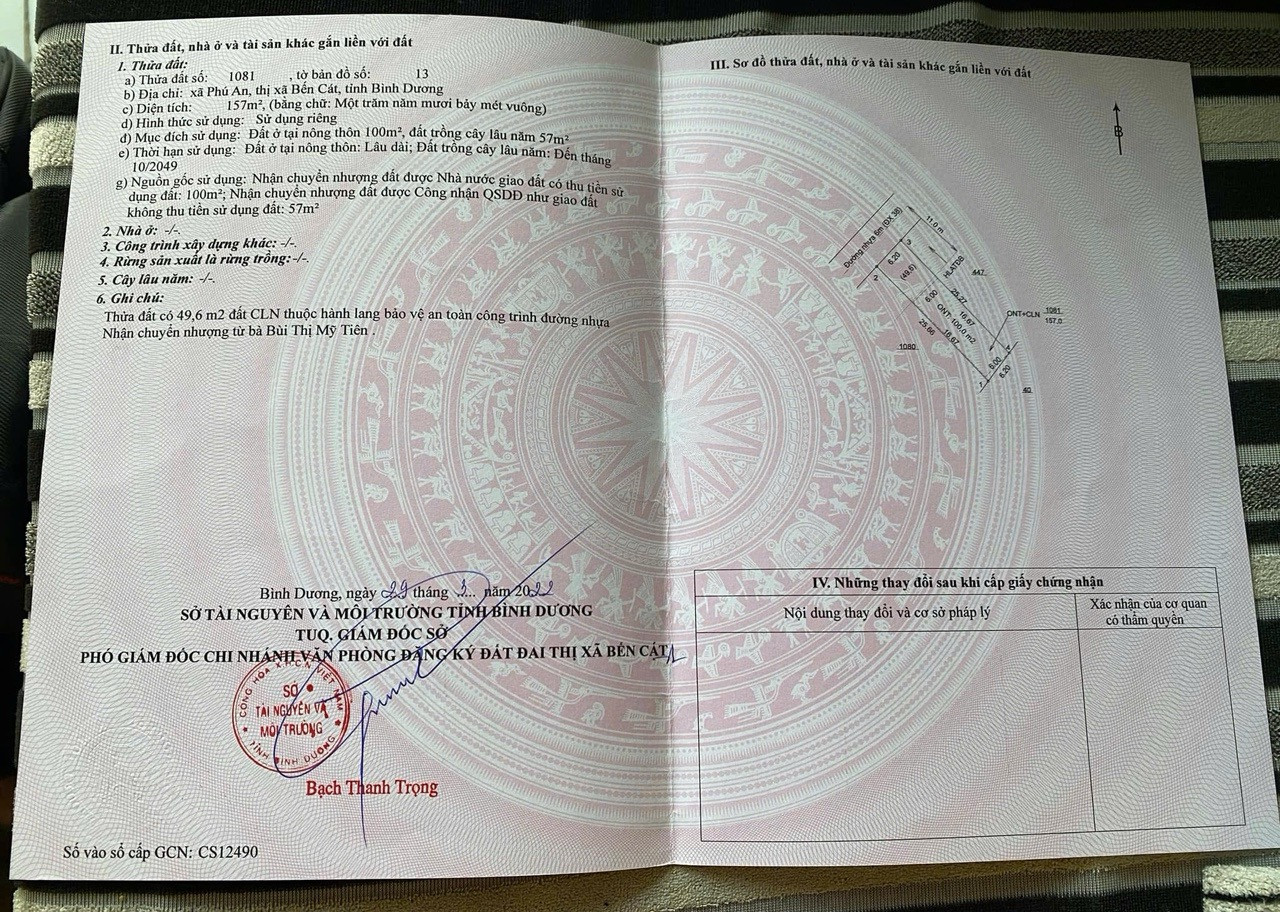 II. Thửa đất, nhà ở và tài sản khác gắn liền với đất
1. Thửa đất:
a) Thửa đất số: 1081 , tờ bản đồ số: 13
b) Địa chỉ: xã Phú An, thị xã Bến Cát, tỉnh Bình Dương
c) Diện tích: 157m², (bằng chữ: Một trăm năm mươi bảy mét vuông)
d) Hình thức sử dụng: Sử dụng riêng
đ) Mục đích sử dụng: Đất ở tại nông thôn 100m², đất trồng cây lâu năm 57m²
e) Thời hạn sử dụng: Đất ở tại nông thôn: Lâu dài; Đất trồng cây lâu năm: Đến tháng
10/2049
g) Nguồn gốc sử dụng: Nhận chuyển nhượng đất được Nhà nước giao đất có thu tiền sử
dụng đất: 100m²; Nhận chuyển nhượng đất được Công nhận QSDĐ như giao đất
không thu tiền sử dụng đất: 57m²
2. Nhà ở: -/-.
3. Công trình xây dựng khác: -/-.
4. Rừng sản xuất là rừng trồng:-/-.
5. Cây lâu năm: -/-.
6. Ghi chú:
Thửa đất có 49,6 m2 đất CLN thuộc hành lang bảo vệ an toàn công trình đường nhựa
Nhận chuyển nhượng từ bà Bùi Thị Mỹ Tiên .
Bình Dương, ngày 29 tháng 3... năm 2022
SỞ TÀI NGUYÊN VÀ MÔI TRƯỜNG TỈNH BÌNH DƯƠNG
TUQ. GIÁM ĐỐC SỞ
PHÓ GIÁM ĐỐC CHI NHÁNH VĂN PHÒNG ĐĂNG KÝ ĐẤT ĐAI THỊ XÃ BẾN CÁT
CỘNG HÒA X.H.C.N VIỆT NAM
SỞ
TÀI NGUYÊN VÀ
MÔI TRƯỜNG
TỈNH BÌNH DƯƠNG
Bạch Thanh Trọng
Số vào sổ cấp GCN: CS12490
III. Sơ đồ thửa đất, nhà ở và tài sản khác gắn liền với đất
B
Đường nhựa 6m (ĐX 38)
11.0 m
3
6.20
2
(49.6)
HLATĐB
447
6.00
25.27
ONT 100.0 m2
16.67
25.66
16.67
ONT+CLN 1081
157.0
1080
4
6.00
6.20
1
40
IV. Những thay đổi sau khi cấp giấy chứng nhận
Nội dung thay đổi và cơ sở pháp lý
Xác nhận của cơ quan
có thẩm quyền